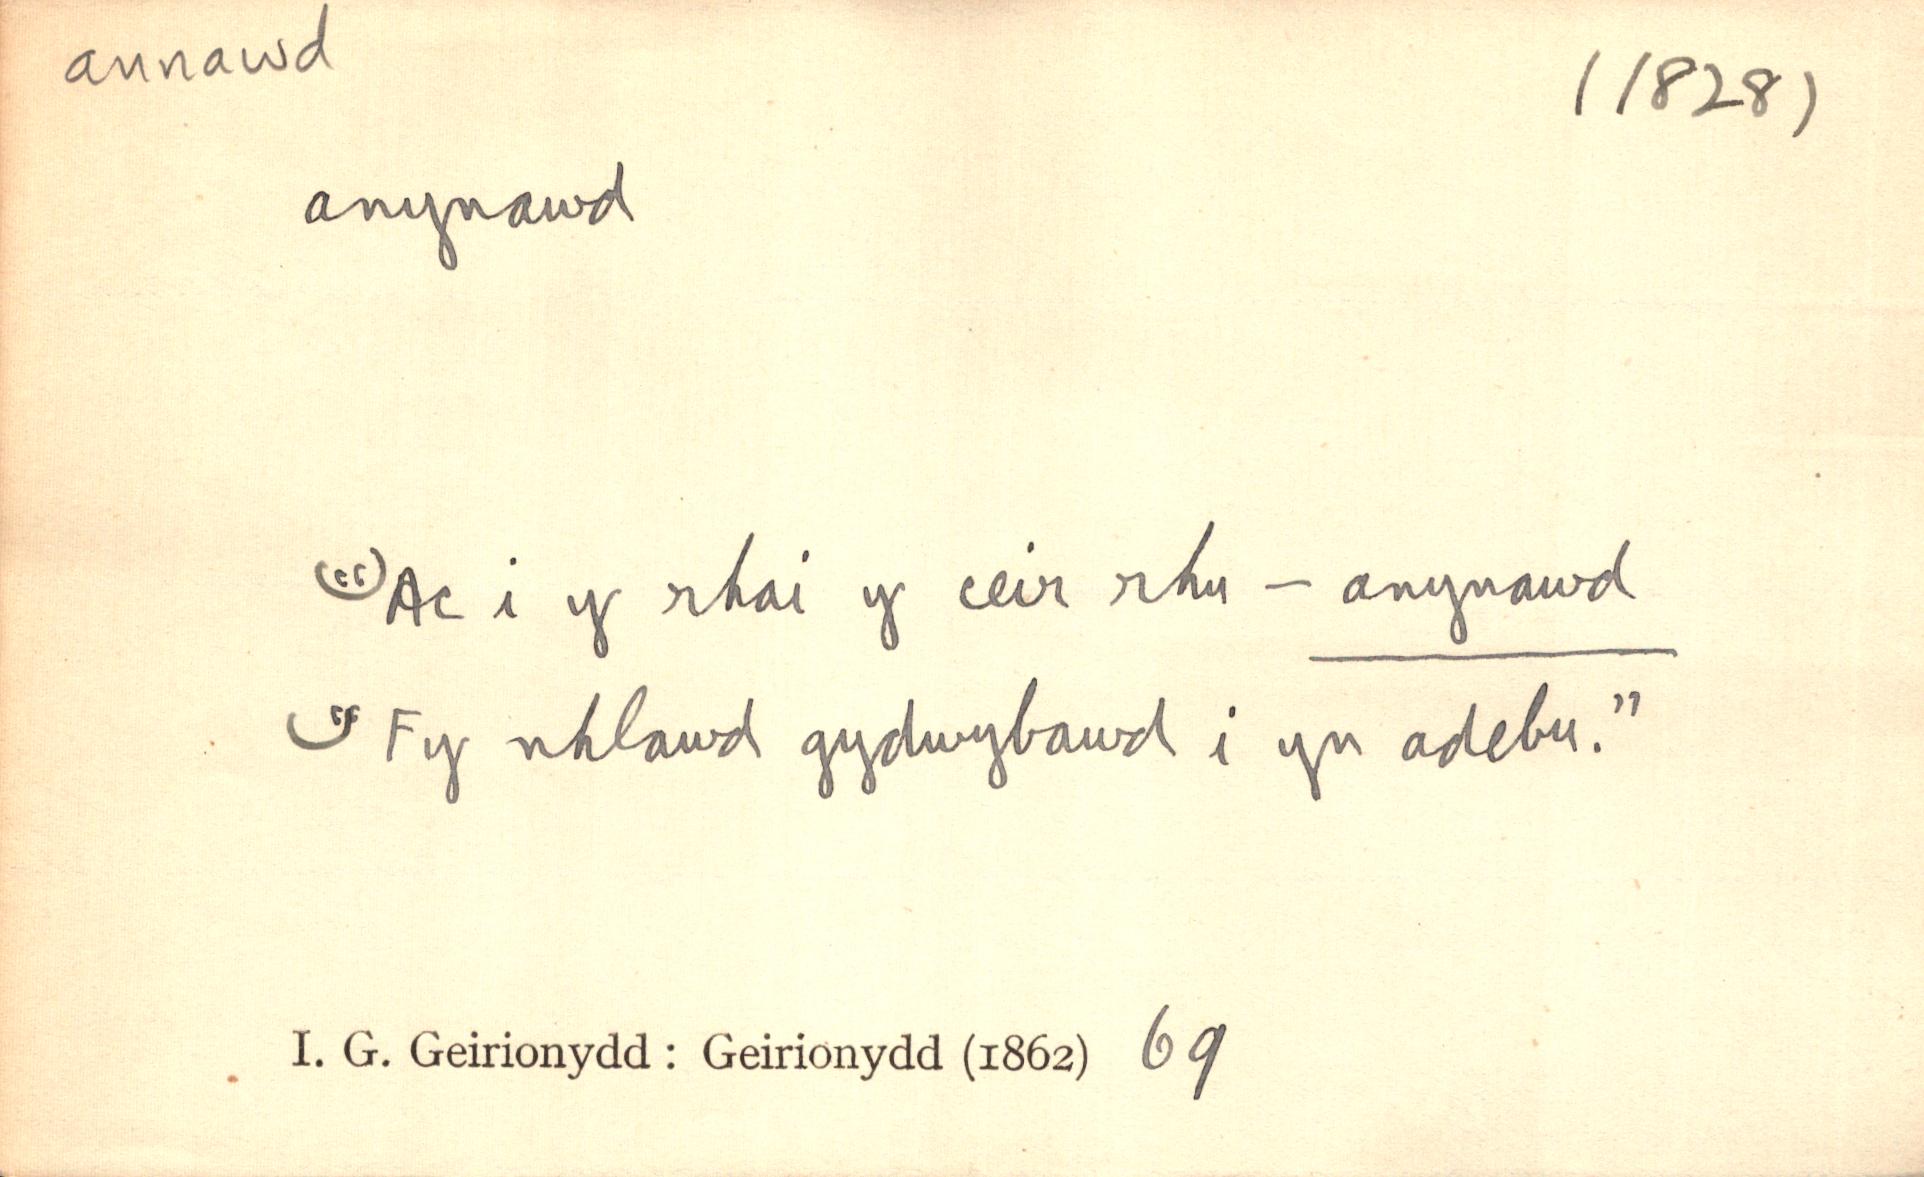 annawd (1828)
anynawd
(“) Ac i y rhai y ceir rhu – anynawd
(“ Fy nhlawd gydwybawd i yn adebu.”
I. G. Geirionydd : Geirionydd (1862) 69